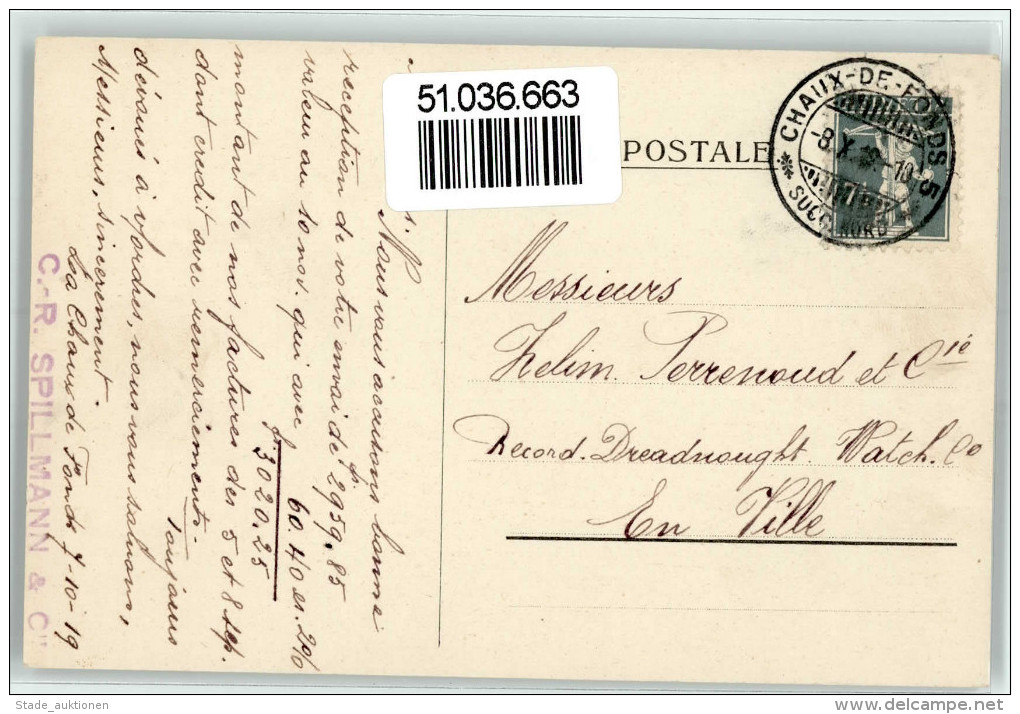 51.036.663
POSTALE
CHAUX-DE-FONDS
-8.X
-10
5
SUCC. NORD
Messieurs
Zelim Perrenoud et Cie
Record. Dreadnought. Watch. Co
En Ville
Nous vous accusons bonne
reception de votre envoi de fr. 2959.85
valeur au 10 nov. qui avec 60.40 es. 2%
f. 3020.25
montant de nos factures des 5 et 8 sep.
dont credit avec remerciements.
Toujours
dévoués à vos ordres, nous vous saluons,
Messieurs, sincerement.
La Chaux de Fonds 7-10-19
C.-R. SPILLMANN & Cie
Stade_auktionen
delcampe.net